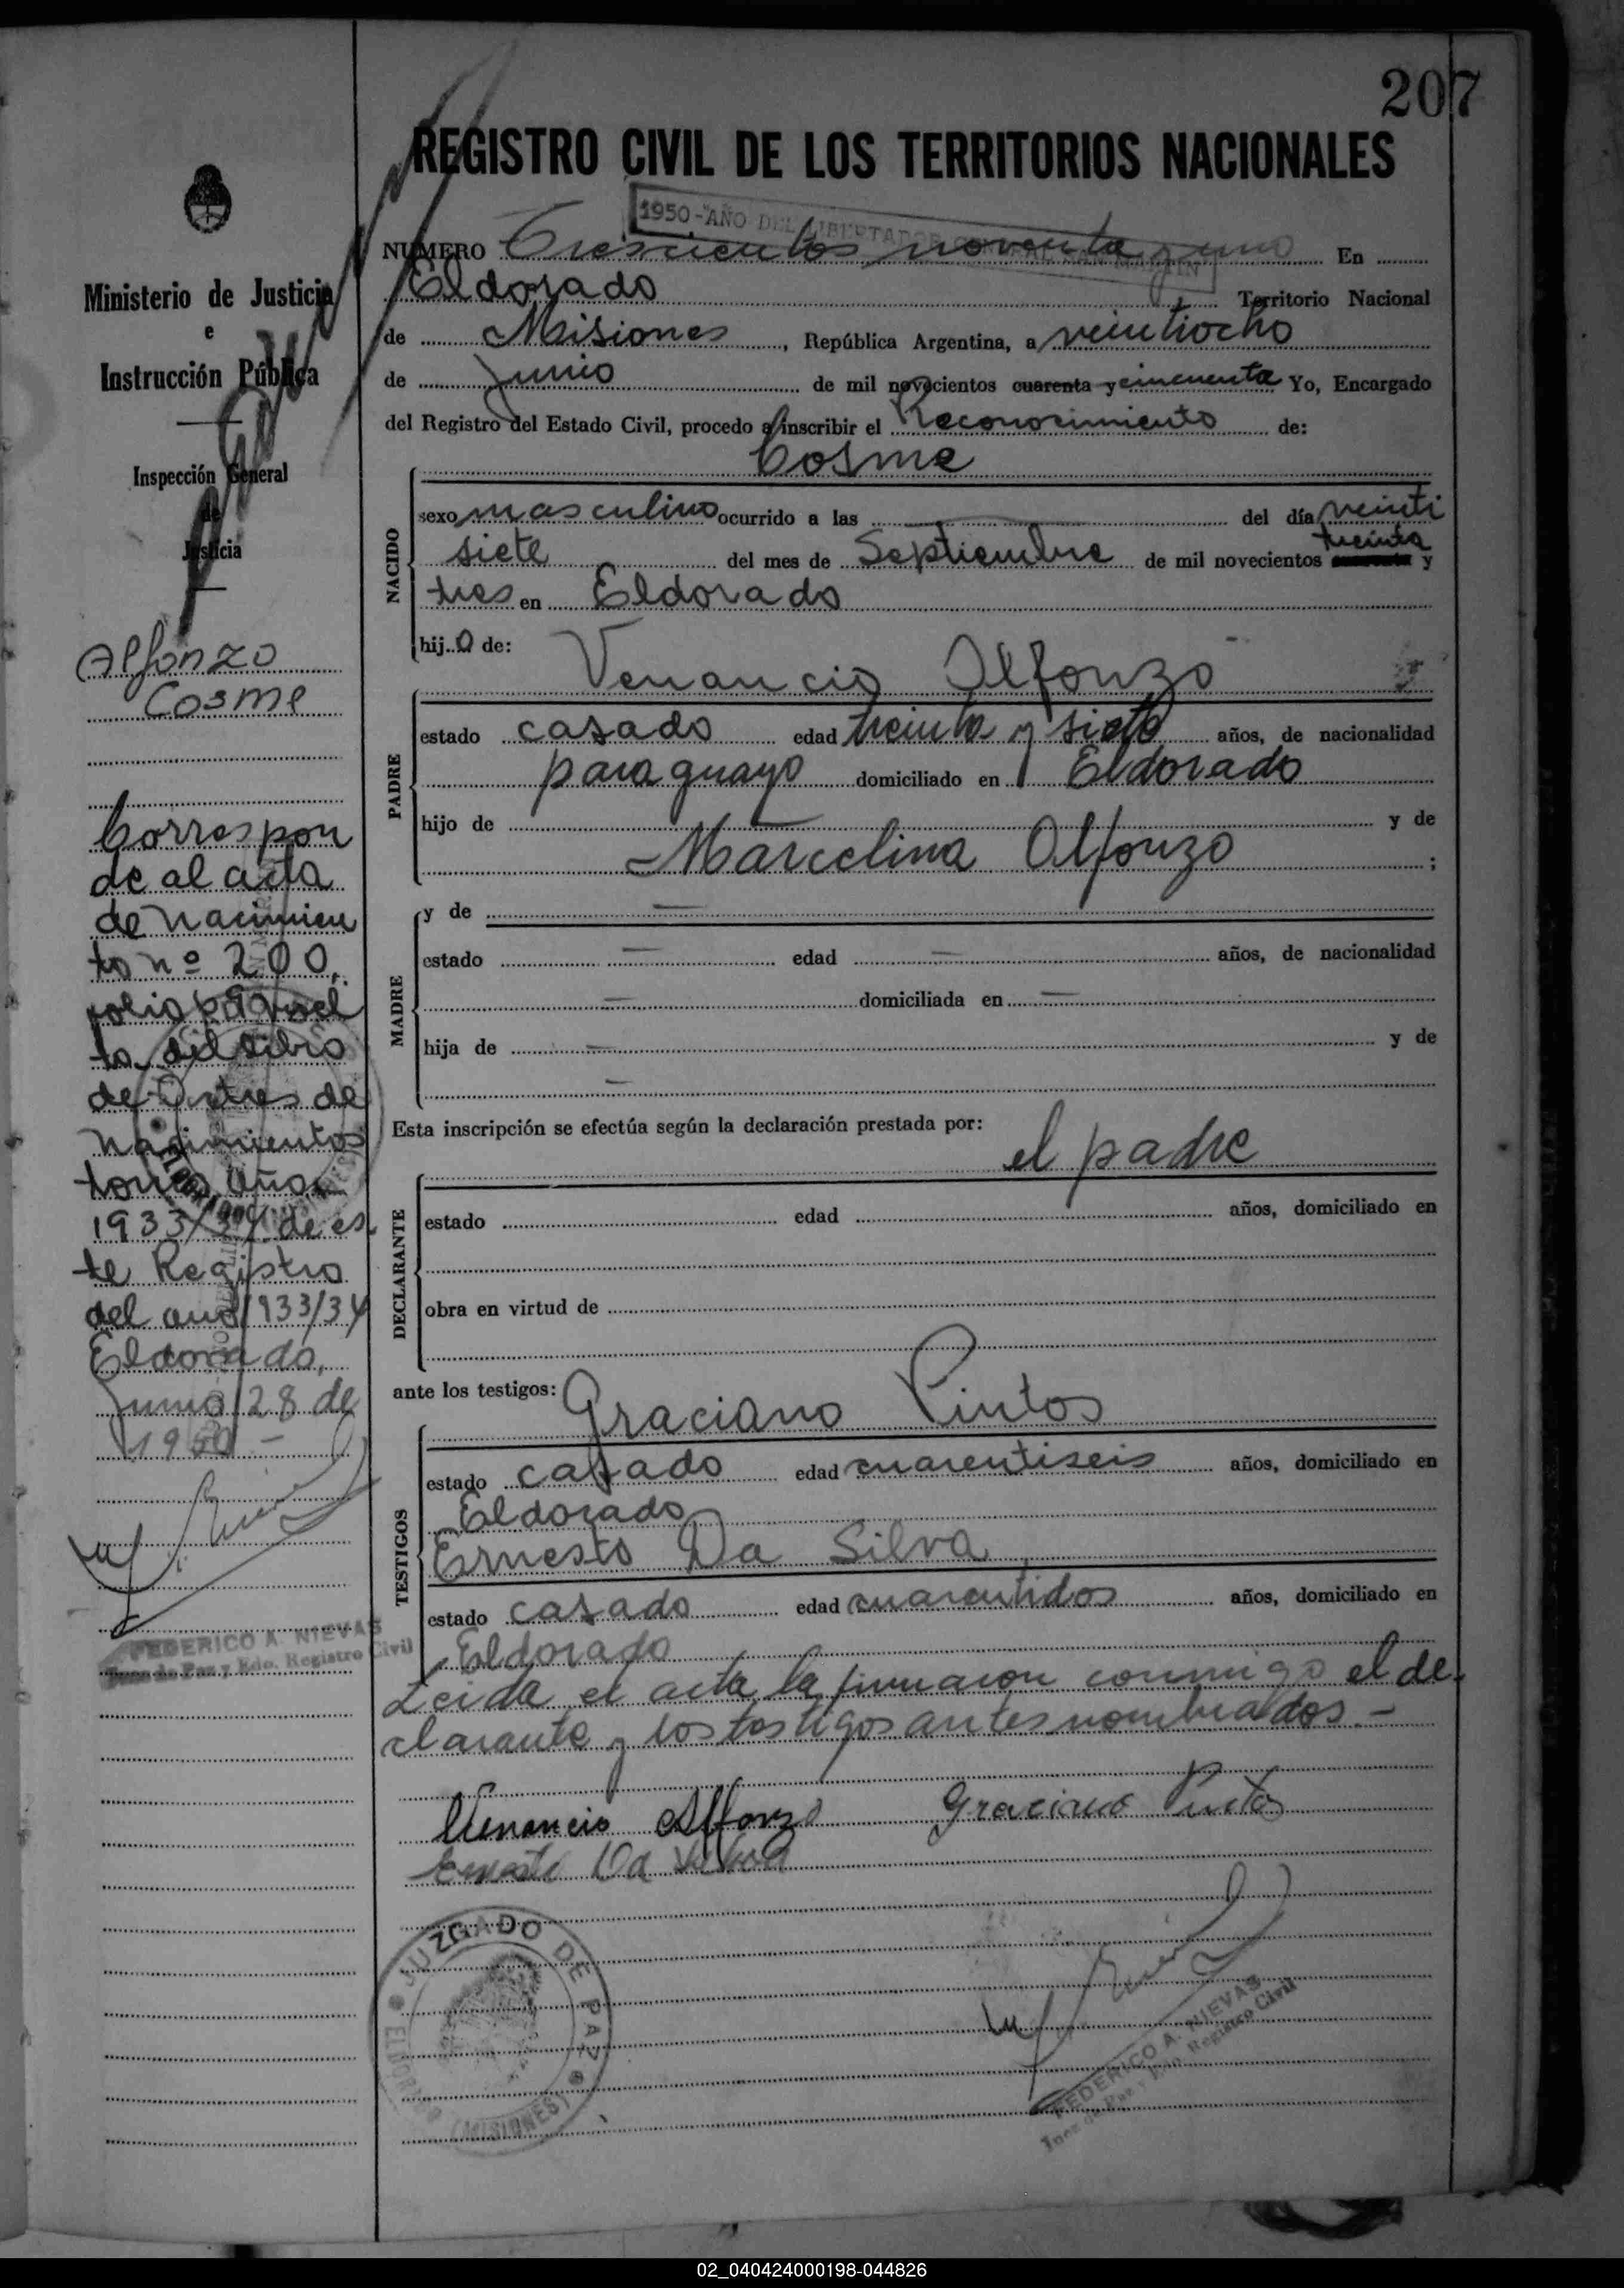 207
REGISTRO CIVIL DE LOS TERRITORIOS NACIONALES
1950-AÑO DEL LIBERTADOR GENERAL SAN MARTIN
NUMERO Trescientos noventa y uno En
Eldorado Territorio Nacional
de Misiones, República Argentina, a veintiocho
de Junio de mil novecientos cuarenta y cincuenta Yo, Encargado
del Registro del Estado Civil, procedo a inscribir el Reconocimiento de:
Cosme
NACIDO
sexo masculino ocurrido a las del día veinti
siete del mes de Septiembre de mil novecientos treinta y
tres en Eldorado
hijo de: Venancio Alfonzo
PADRE
estado casado edad treinta y siete años, de nacionalidad
paraguayo domiciliado en Eldorado
hijo de — y de
Marcelina Alfonzo ;
MADRE
y de —
estado — edad — años, de nacionalidad
— domiciliada en —
hija de — y de
—
Esta inscripción se efectúa según la declaración prestada por:
el padre
DECLARANTE
estado edad años, domiciliado en
obra en virtud de
ante los testigos: Graciano Pintos
TESTIGOS
estado casado edad cuarentiseis años, domiciliado en
Eldorado
Ernesto Da Silva
estado casado edad cuarentidos años, domiciliado en
Eldorado
Leida el acta la firmaron conmigo el de-
clarante y los testigos antes nombrados.-
Venancio Alfonzo Graciano Pintos
Ernesto Da Silva
JUZGADO DE PAZ
ELDORADO
(MISIONES)
FEDERICO A. NIEVAS
Juez de Paz y Edo. Registro Civil
Ministerio de Justicia
e
Instrucción Pública
Inspección General
de
Justicia
Alfonzo
Cosme
Correspon
de al acta
de nacimien
to nº 200,
folio vuel
ta del libro
de Actas de
Nacimientos
tomo año
1933/34 de es
te Registro
del año 1933/34
Eldorado,
Junio 28 de
1950 -
FEDERICO A. NIEVAS
Juez de Paz y Edo. Registro Civil
02_040424000198-044826